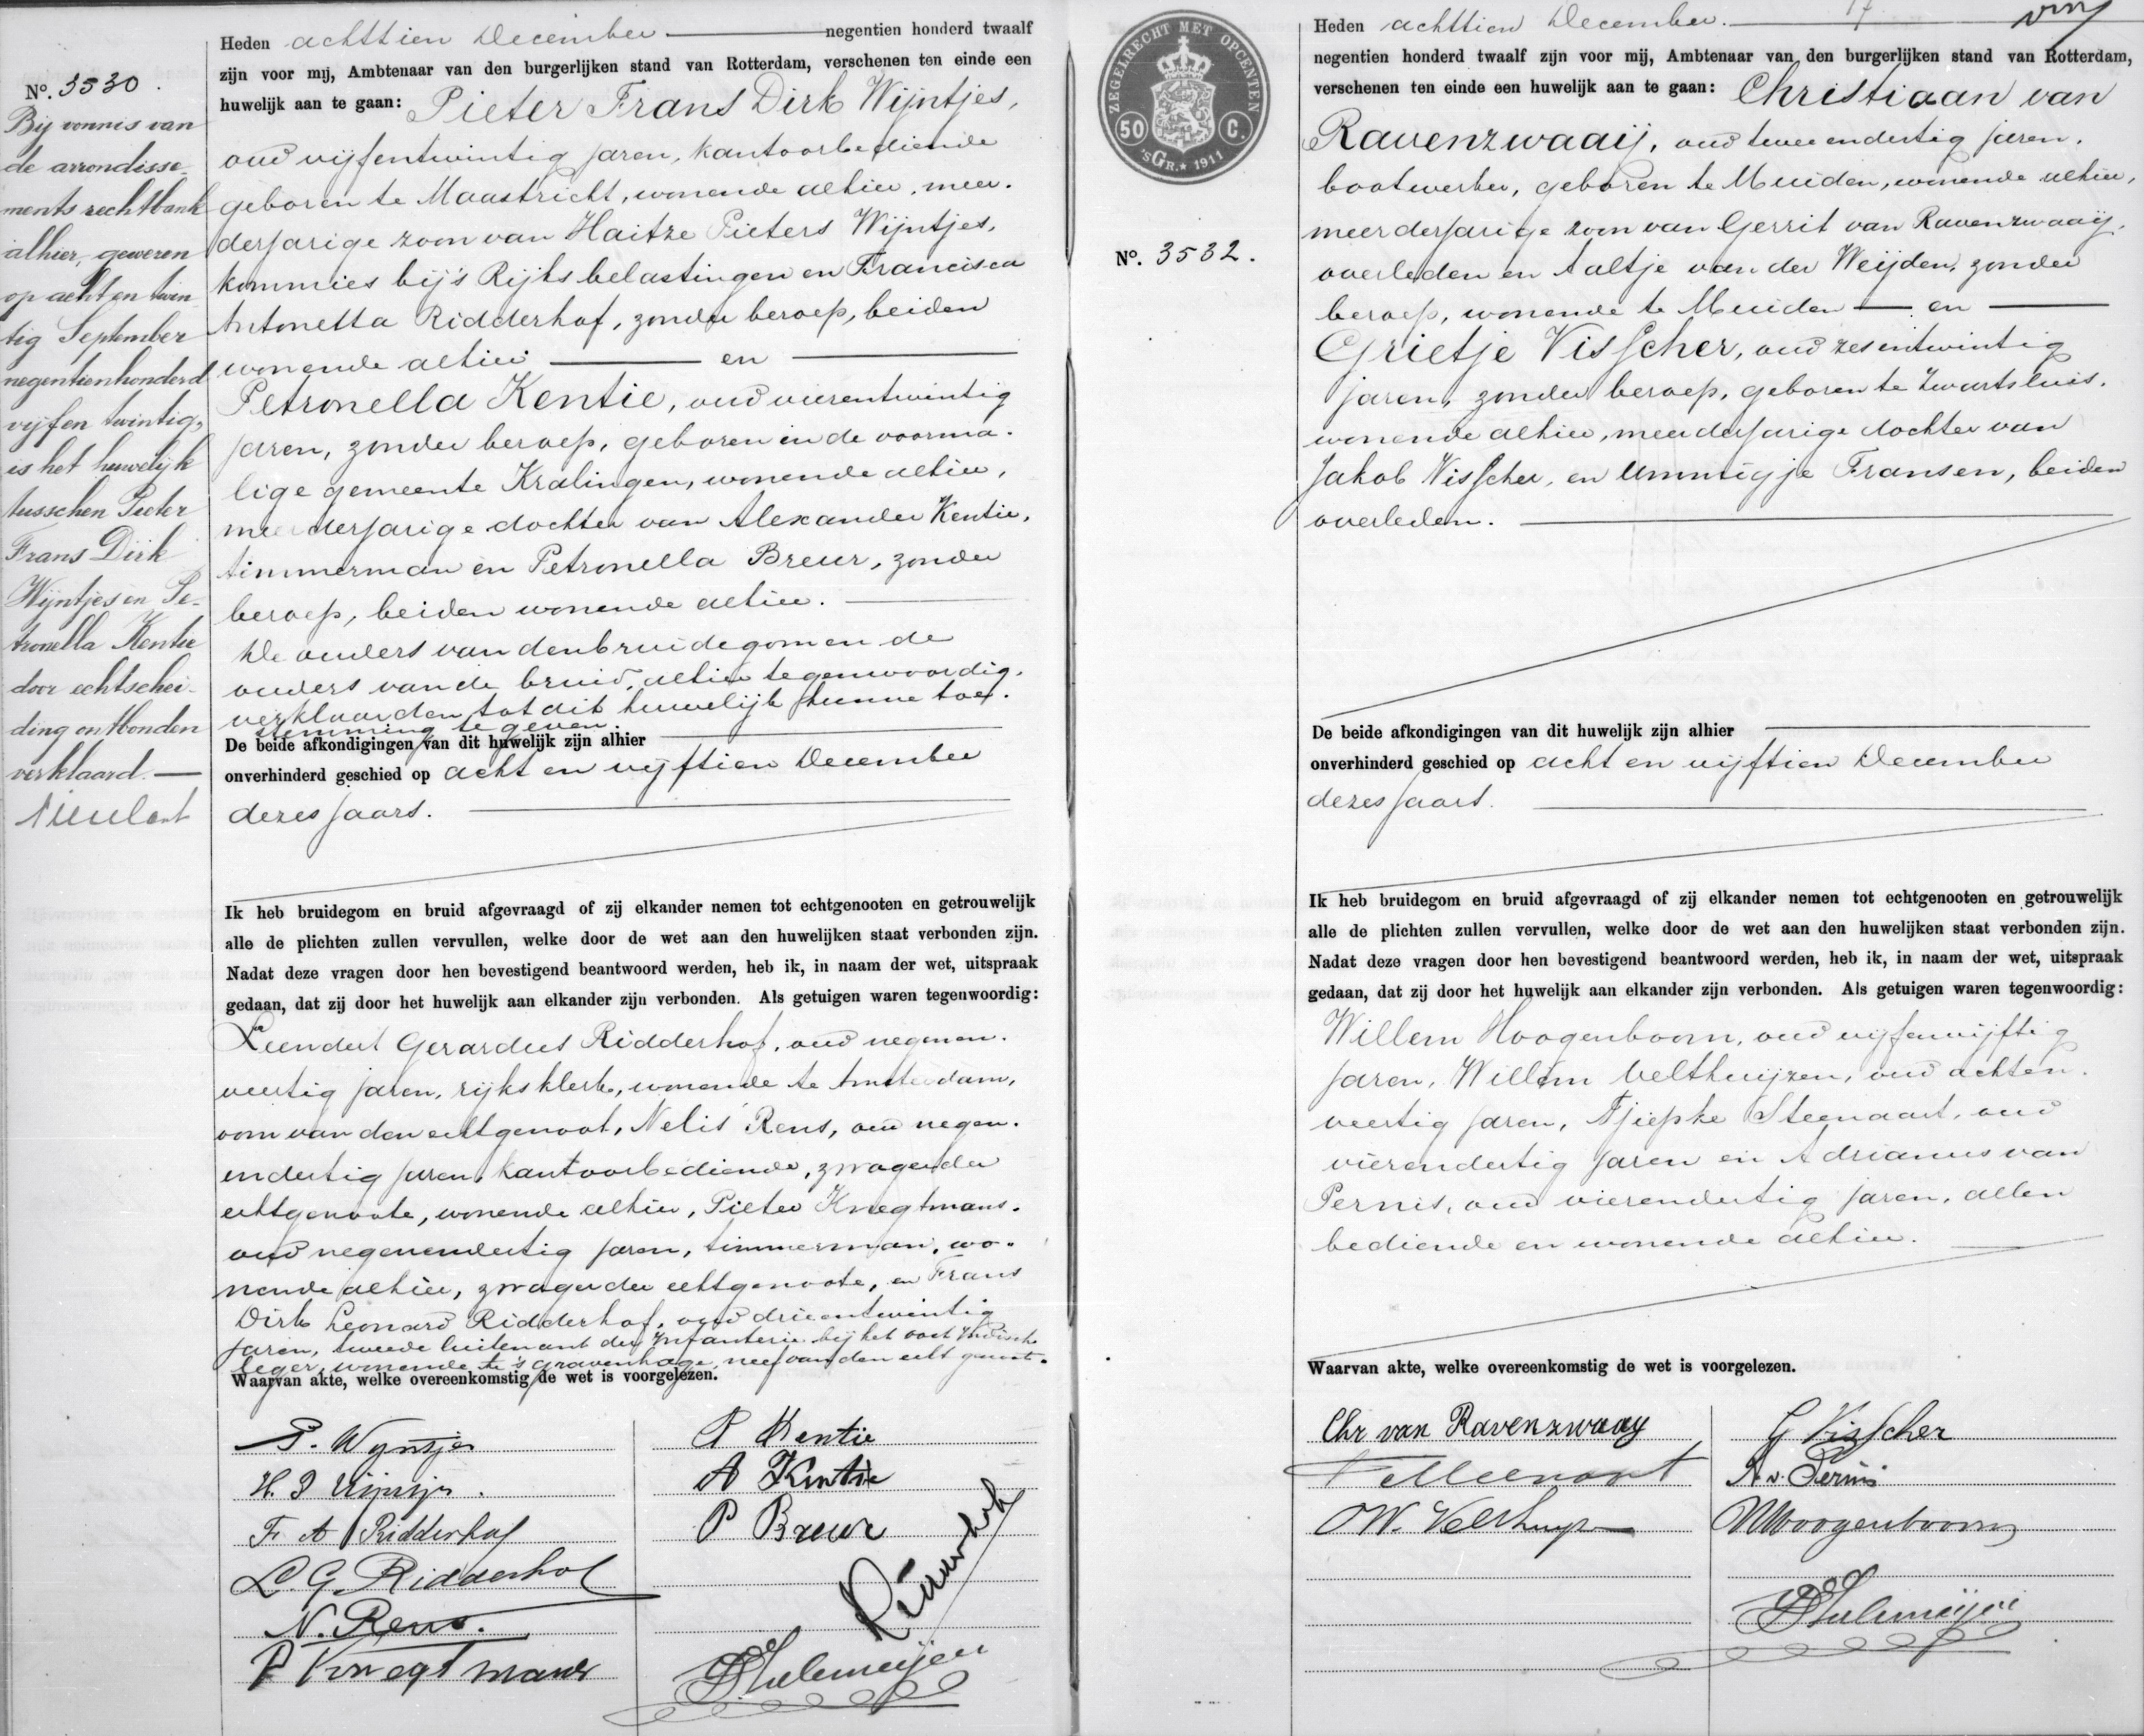 Heden achttien December negentien honderd twaalf
zijn voor mij, Ambtenaar van den burgerlijken stand van Rotterdam, verschenen ten einde een
huwelijk aan te gaan: Pieter Frans Dirk Wijntjes,
oud vijfentwintig jaren, kantoorbediende
geboren te Maastricht, wonende alhier, meer-
derjarige zoon van Haitze Pieters Wijntjes,
kommies bij 's Rijks belastingen en Francisca
Antonetta Ridderhof, zonder beroep, beiden
wonende alhier en
Petronella Kentie, oud vierentwintig
jaren, zonder beroep, geboren in de voorma-
lige gemeente Kralingen, wonende alhier,
meerderjarige dochter van Alexander Kentie,
timmerman en Petronella Breur, zonder
beroep, beiden wonende alhier.
De ouders van den bruidegom en de
ouders van de bruid, alhier tegenwoordig,
verklaarden tot dit huwelijk hunne toe-
stemming te geven.
De beide afkondigingen van dit huwelijk zijn alhier
onverhinderd geschied op acht en vijftien December
dezes jaars.
Ik heb bruidegom en bruid afgevraagd of zij elkander nemen tot echtgenooten en getrouwelijk
alle de plichten zullen vervullen, welke door de wet aan den huwelijken staat verbonden zijn.
Nadat deze vragen door hen bevestigend beantwoord werden, heb ik, in naam der wet, uitspraak
gedaan, dat zij door het huwelijk aan elkander zijn verbonden. Als getuigen waren tegenwoordig:
Leendert Gerardus Ridderhof, oud negenen-
veertig jaren, rijksklerk, wonende te Amsterdam,
oom van den echtgenoot, Nelis Rens, oud negen-
endertig jaren, kantoorbediende, zwager der
echtgenoote, wonende alhier, Pieter Knegtmans,
oud negenendertig jaren, timmerman, wo-
nende alhier, zwager der echtgenoote, en Frans
Dirk Leonard Ridderhof, oud drieentwintig
jaren, tweede luitenant der Infanterie bij het Oost Indisch
leger, wonende te 's Gravenhage, neef van den echtgenoot.
Waarvan akte, welke overeenkomstig de wet is voorgelezen.
P. Wijntjes
P Kentie
H. P Wijntjes.
A Kentie
F A Ridderhof
P Breur
L. G. Ridderhof
N. Rens.
P Knegtmans
No. 3530.
Bij vonnis van
de arrondisse-
ments rechtbank
alhier, gewezen
op acht en twin
tig September
negentienhonderd
vijf en twintig,
is het huwelijk
tusschen Pieter
Frans Dirk
Wijntjes en Pe-
tronella Kentie
door echtschei-
ding ontbonden
verklaard.
ZEGELRECHT MET OPCENTEN
50 C.
'sGR. 1911
No. 3532.
17
Heden achttien December.
negentien honderd twaalf zijn voor mij, Ambtenaar van den burgerlijken stand van Rotterdam,
verschenen ten einde een huwelijk aan te gaan: Christiaan van
Ravenzwaaij, oud tweeendertig jaren,
bootwerker, geboren te Muiden, wonende alhier,
meerderjarige zoon van Gerrit van Ravenzwaaij,
overleden en Aaltje van der Weijden, zonder
beroep, wonende te Muiden en
Grietje Visscher, oud zesentwintig
jaren, zonder beroep, geboren te Zwartsluis,
wonende alhier, meerderjarige dochter van
Jakob Visscher, en Ummigje Fransen, beiden
overleden.
De beide afkondigingen van dit huwelijk zijn alhier
onverhinderd geschied op acht en vijftien December
dezes jaars.
Ik heb bruidegom en bruid afgevraagd of zij elkander nemen tot echtgenooten en getrouwelijk
alle de plichten zullen vervullen, welke door de wet aan den huwelijken staat verbonden zijn.
Nadat deze vragen door hen bevestigend beantwoord werden, heb ik, in naam der wet, uitspraak
gedaan, dat zij door het huwelijk aan elkander zijn verbonden. Als getuigen waren tegenwoordig:
Willem Hoogenboom, oud vijfenvijftig
jaren, Willem Velthuijzen, oud achten-
veertig jaren, Tjiepke Steenaart, oud
vierendertig jaren en Adrianus van
Pernis, oud vierendertig jaren, allen
bediende en wonende alhier.
Waarvan akte, welke overeenkomstig de wet is voorgelezen.
Chr van Ravenzwaay
G Visscher
A. v. Pernis
W. Velthuyz
WHoogenboom